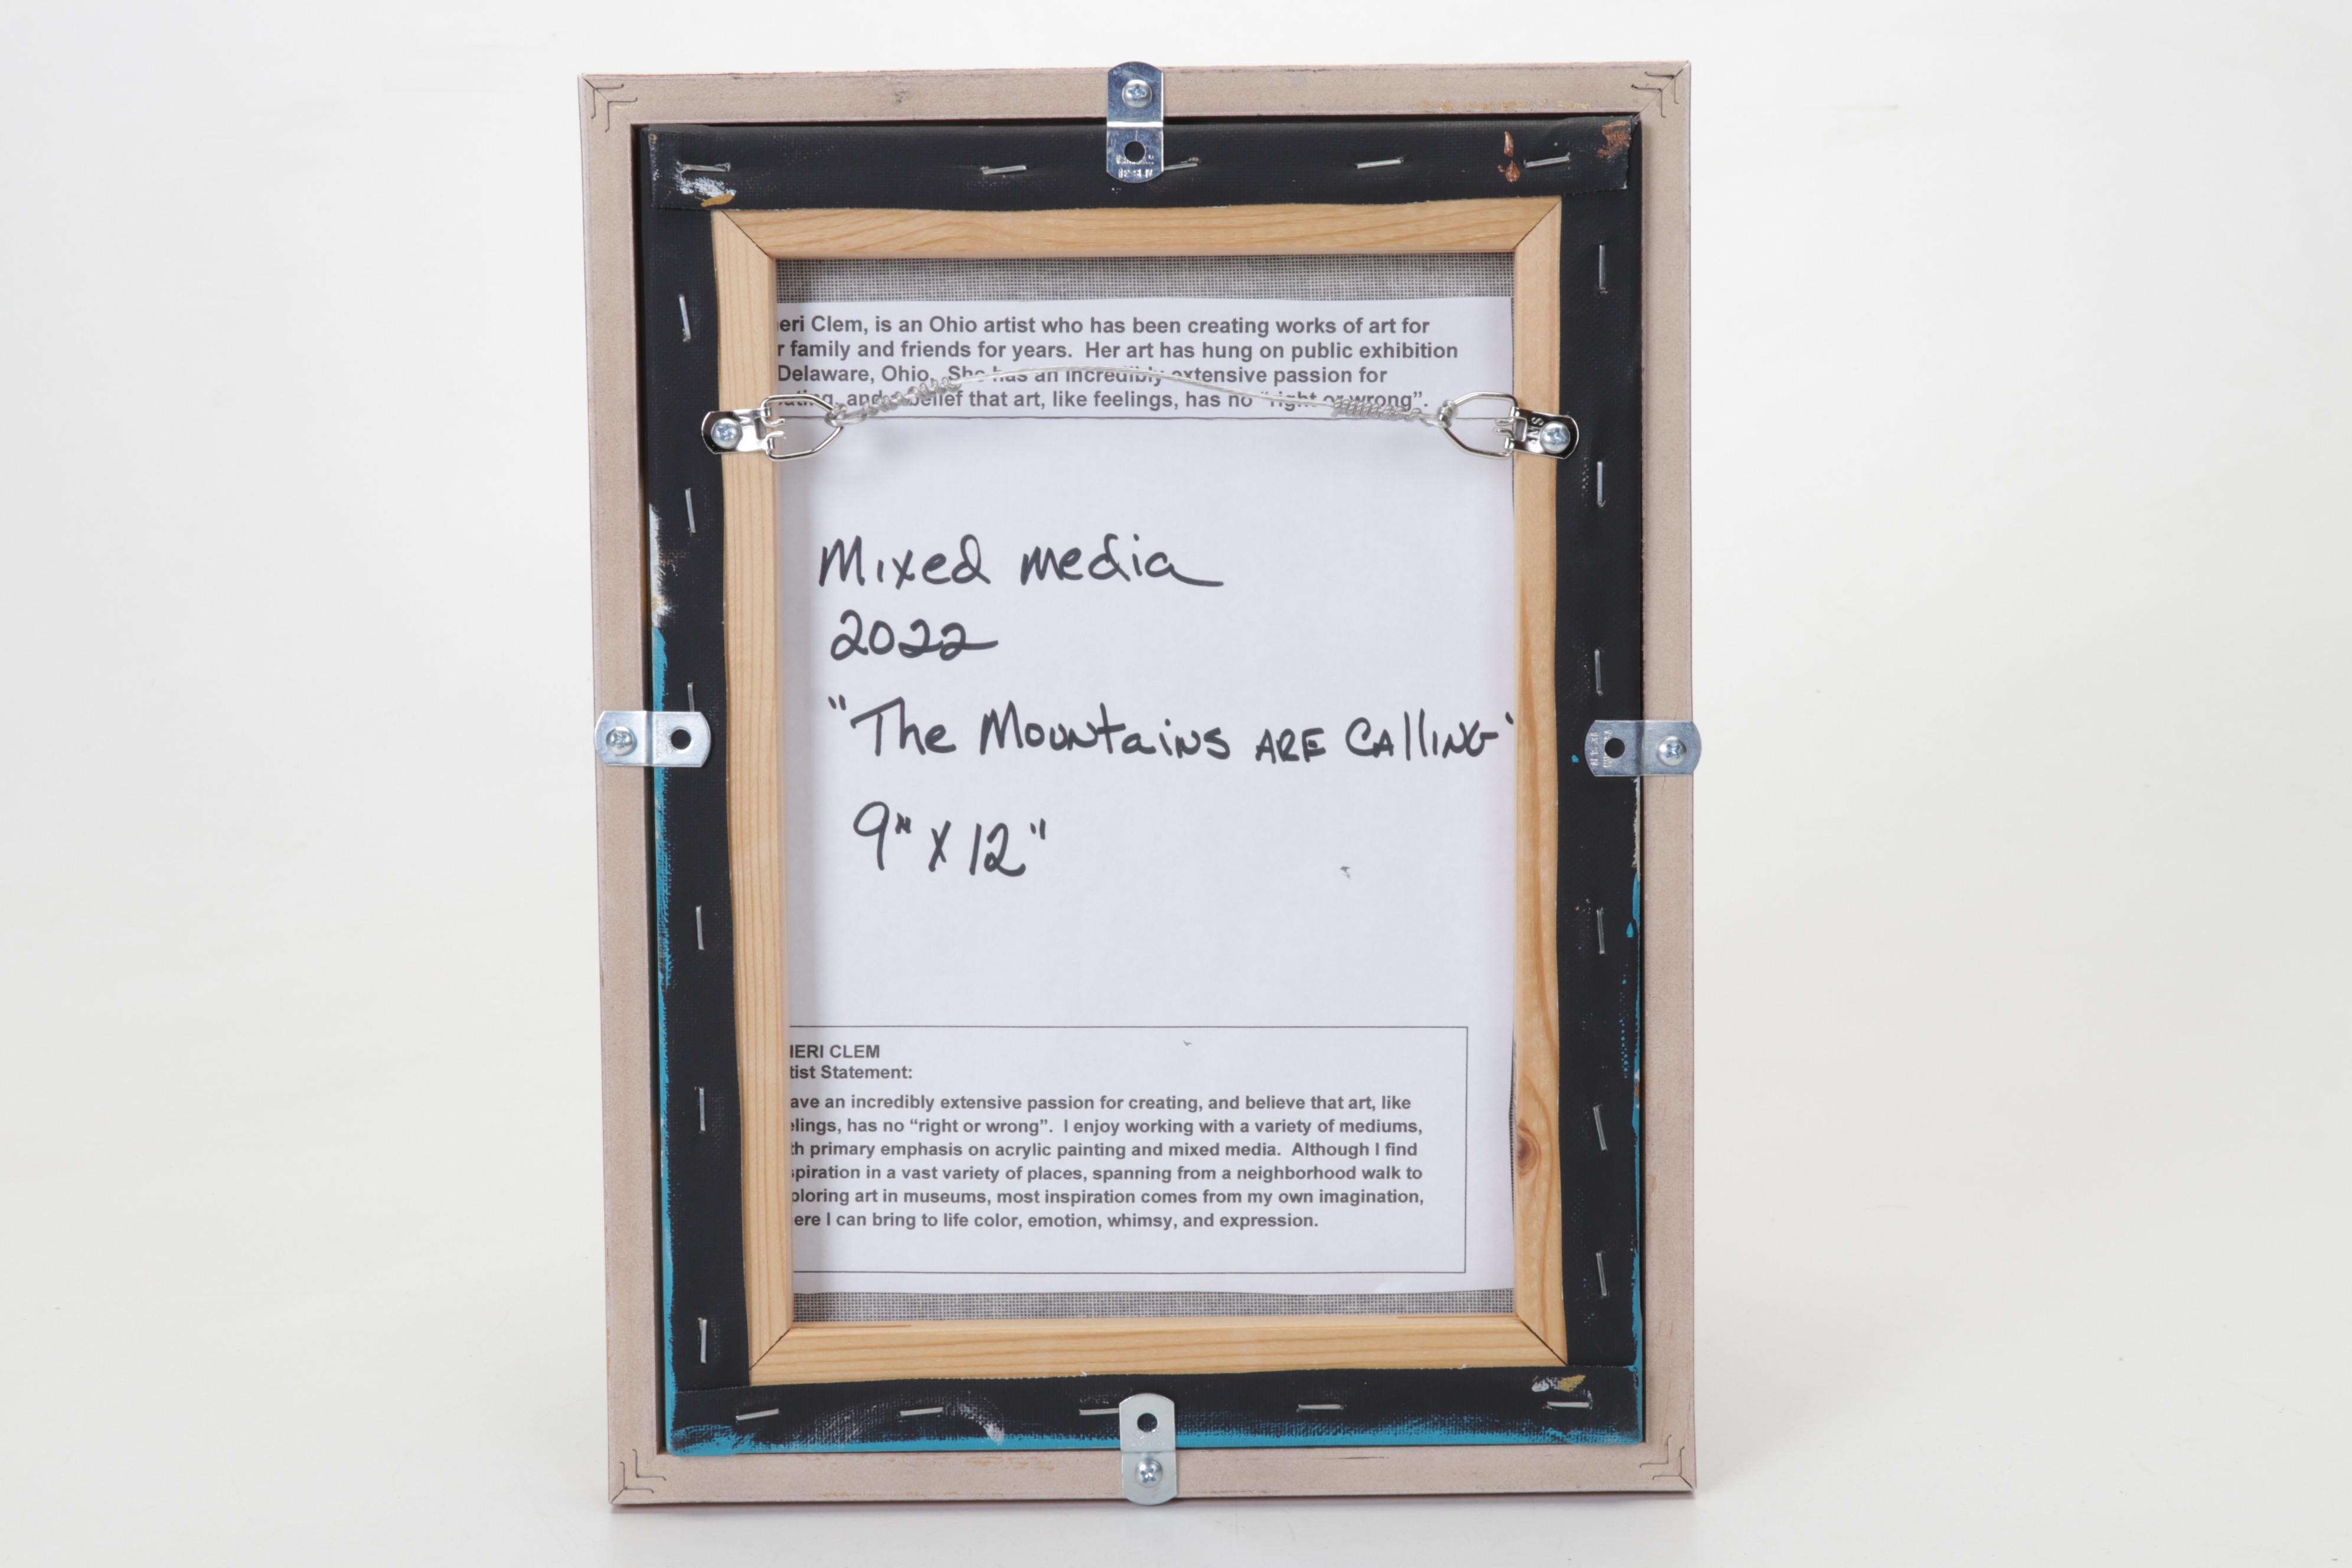 eri Clem, is an Ohio artist who has been creating works of art for
r family and friends for years. Her art has hung on public exhibition
Delaware, Ohio. She has an incredibly extensive passion for
ating, and belief that art, like feelings, has no “right or wrong”.
Mixed media
2022
"The Mountains ARE CAlliNG"
9" X 12"
IERI CLEM
tist Statement:
ave an incredibly extensive passion for creating, and believe that art, like
elings, has no “right or wrong”. I enjoy working with a variety of mediums,
th primary emphasis on acrylic painting and mixed media. Although I find
spiration in a vast variety of places, spanning from a neighborhood walk to
ploring art in museums, most inspiration comes from my own imagination,
ere I can bring to life color, emotion, whimsy, and expression.